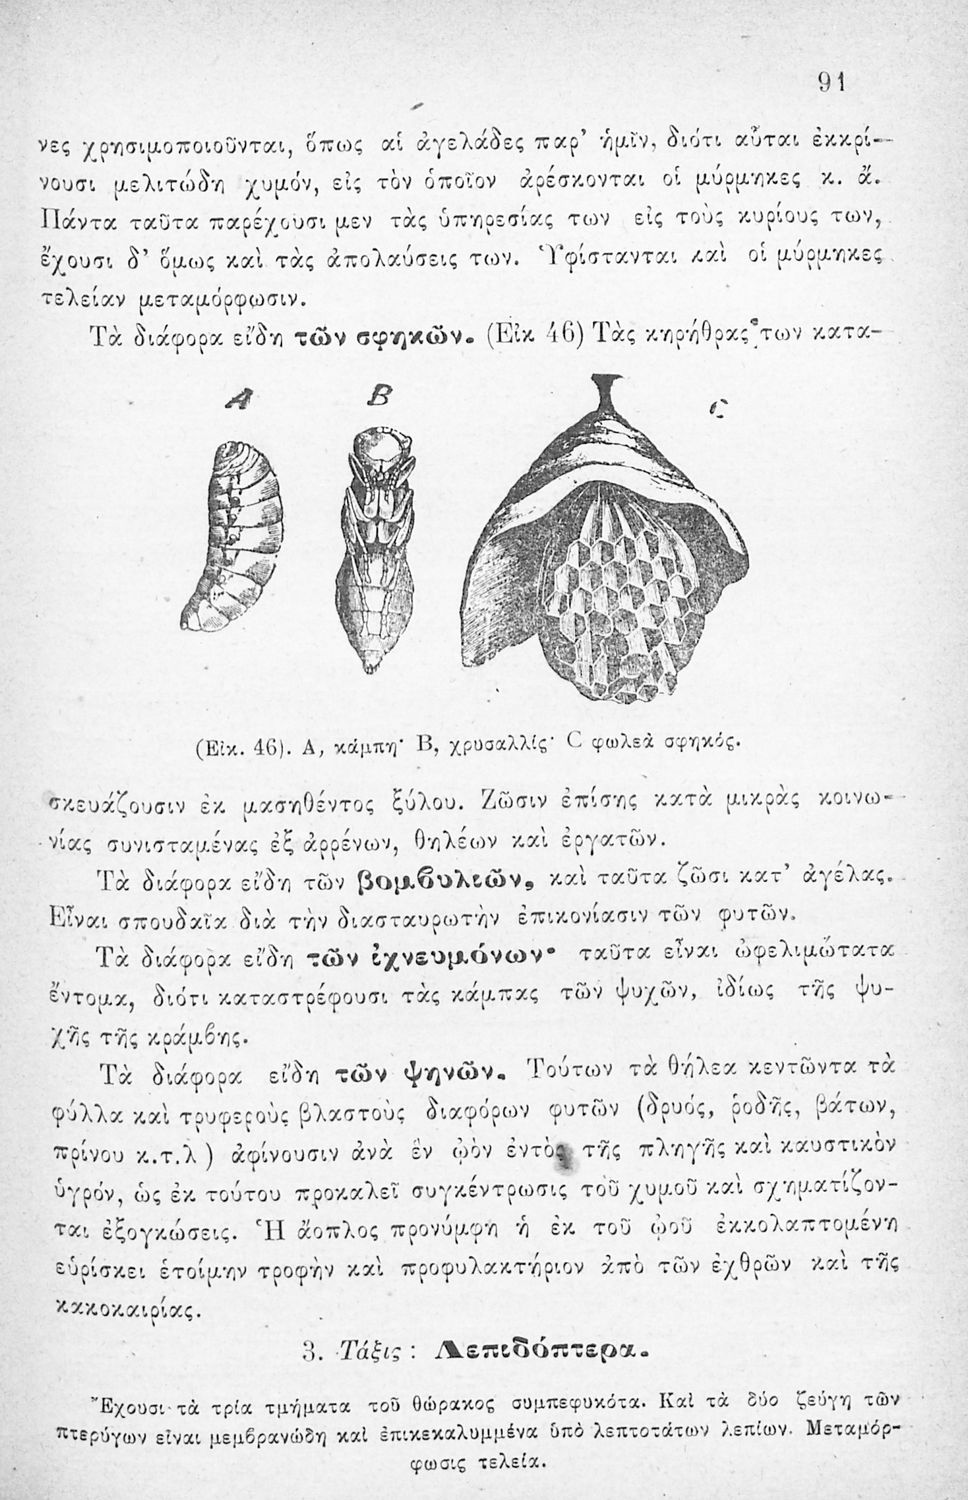 91
νες χρησιμοποιοῦνται, ὅπως αἱ ἀγελάδες παρ’ ἡμῖν, διότι αὗται ἐκκρί-
νουσι μελιτώδη χυμόν, εἰς τὸν ὁποῖον ἀρέσκονται οἱ μύρμηκες κ. ἄ.
Πάντα ταῦτα παρέχουσι μεν τὰς ὑπηρεσίας των εἰς τοὺς κυρίους των,
ἔχουσι δ’ ὅμως καὶ τὰς ἀπολαύσεις των. Ὑφίστανται καὶ οἱ μύρμηκες
τελείαν μεταμόρφωσιν.
Τὰ διάφορα εἴδη τῶν σφηκῶν. (Εἰκ 46) Τὰς κηρήθρας των κατα-
A
B
C
(Εἰκ. 46). A, κάμπη· B, χρυσαλλίς· C φωλεὰ σφηκός.
σκευάζουσιν ἐκ μασηθέντος ξύλου. Ζῶσιν ἐπίσης κατὰ μικρὰς κοινω-
νίας συνισταμένας ἐξ ἀρρένων, θηλέων καὶ ἐργατῶν.
Τὰ διάφορα εἴδη τῶν βομϐυλιῶν, καὶ ταῦτα ζῶσι κατ’ ἀγέλας.
Εἶναι σπουδαῖα διὰ τὴν διασταυρωτὴν ἐπικονίασιν τῶν φυτῶν.
Τὰ διάφορα εἴδη τῶν ἰχνευμόνων· ταῦτα εἶναι ὠφελιμώτατα
ἔντομα, διότι καταστρέφουσι τὰς κάμπας τῶν ψυχῶν, ἰδίως τῆς ψυ-
χῆς τῆς κράμϐης.
Τὰ διάφορα εἴδη τῶν ψηνῶν. Τούτων τὰ θήλεα κεντῶντα τὰ
φύλλα καὶ τρυφεροὺς βλαστοὺς διαφόρων φυτῶν (δρυός, ῥοδῆς, βάτων,
πρίνου κ.τ.λ ) ἀφίνουσιν ἀνὰ ἓν ᾠὸν ἐντὸς τῆς πληγῆς καὶ καυστικὸν
ὑγρόν, ὡς ἐκ τούτου προκαλεῖ συγκέντρωσις τοῦ χυμοῦ καὶ σχηματίζον-
ται ἐξογκώσεις. Ἡ ἄοπλος προνύμφη ἡ ἐκ τοῦ ᾠοῦ ἐκκολαπτομένη
εὑρίσκει ἑτοίμην τροφὴν καὶ προφυλακτήριον ἀπὸ τῶν ἐχθρῶν καὶ τῆς
κακοκαιρίας.
3. Τάξις : Λεπιδόπτερα.
Ἔχουσι τὰ τρία τμήματα τοῦ θώρακος συμπεφυκότα. Καὶ τὰ δύο ζεύγη τῶν
πτερύγων εἶναι μεμϐρανώδη καὶ ἐπικεκαλυμμένα ὑπὸ λεπτοτάτων λεπίων. Μεταμόρ-
φωσις τελεία.